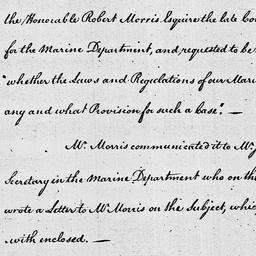 the Honorable Robert Morris Esquire the late Co
for the Marine Department, and requested to be
"whether the Laws and Regulations of our Mari
any and what Provision for such a Case". —
Mr. Morris communicated it to Mr. J
Secretary in the Marine Department who on th
wrote a Letter to Mr. Morris on the Subject, whic
with enclosed. —